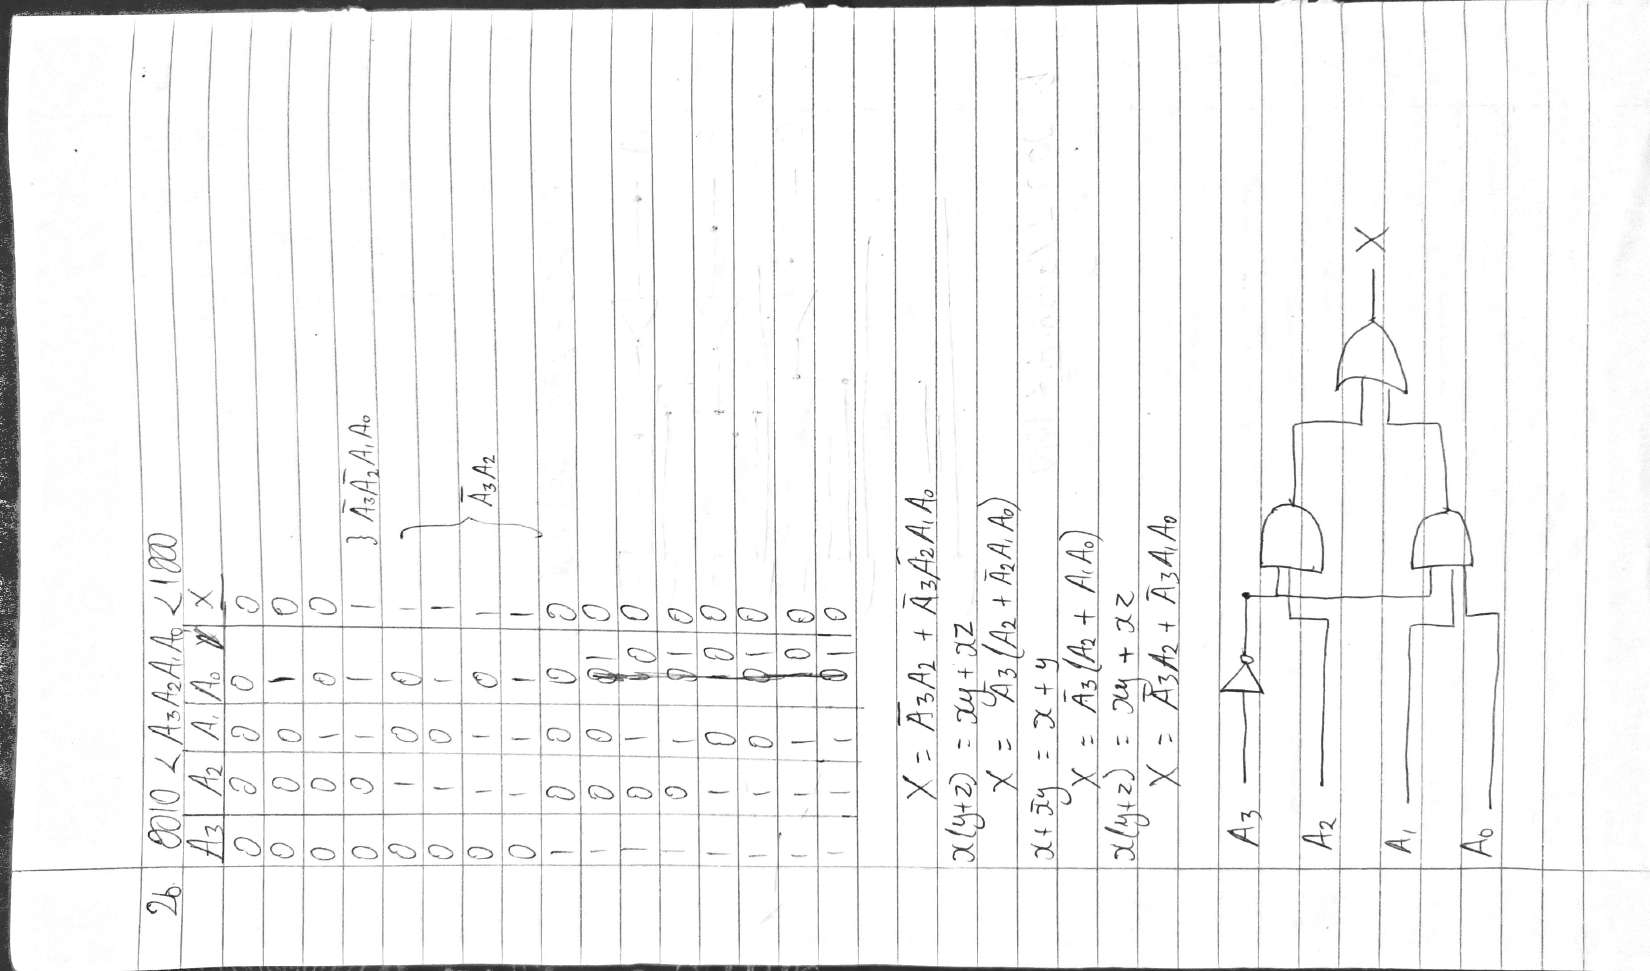 2b. 0010 < A₃A₂A₁A₀ < 1000
A₃ A₂ A₁ A₀ X
0 0 0 0 0
0 0 0 1 0
0 0 1 0 0
0 0 1 1 1 } A̅₃A̅₂A₁A₀
0 1 0 0 1
0 1 0 1 1
0 1 1 0 1 } A̅₃A₂
0 1 1 1 1
1 0 0 0 0
1 0 0 1 0
1 0 1 0 0
1 0 1 1 0
1 1 0 0 0
1 1 0 1 0
1 1 1 0 0
1 1 1 1 0
X = A̅₃A₂ + A̅₃A̅₂A₁A₀
x(y+z) = xy + xz
X = A̅₃(A₂ + A̅₂A₁A₀)
x + x̅y = x + y
X = A̅₃(A₂ + A₁A₀)
x(y+z) = xy + xz
X = A̅₃A₂ + A̅₃A₁A₀
A₃
A₂
X
A₁
A₀